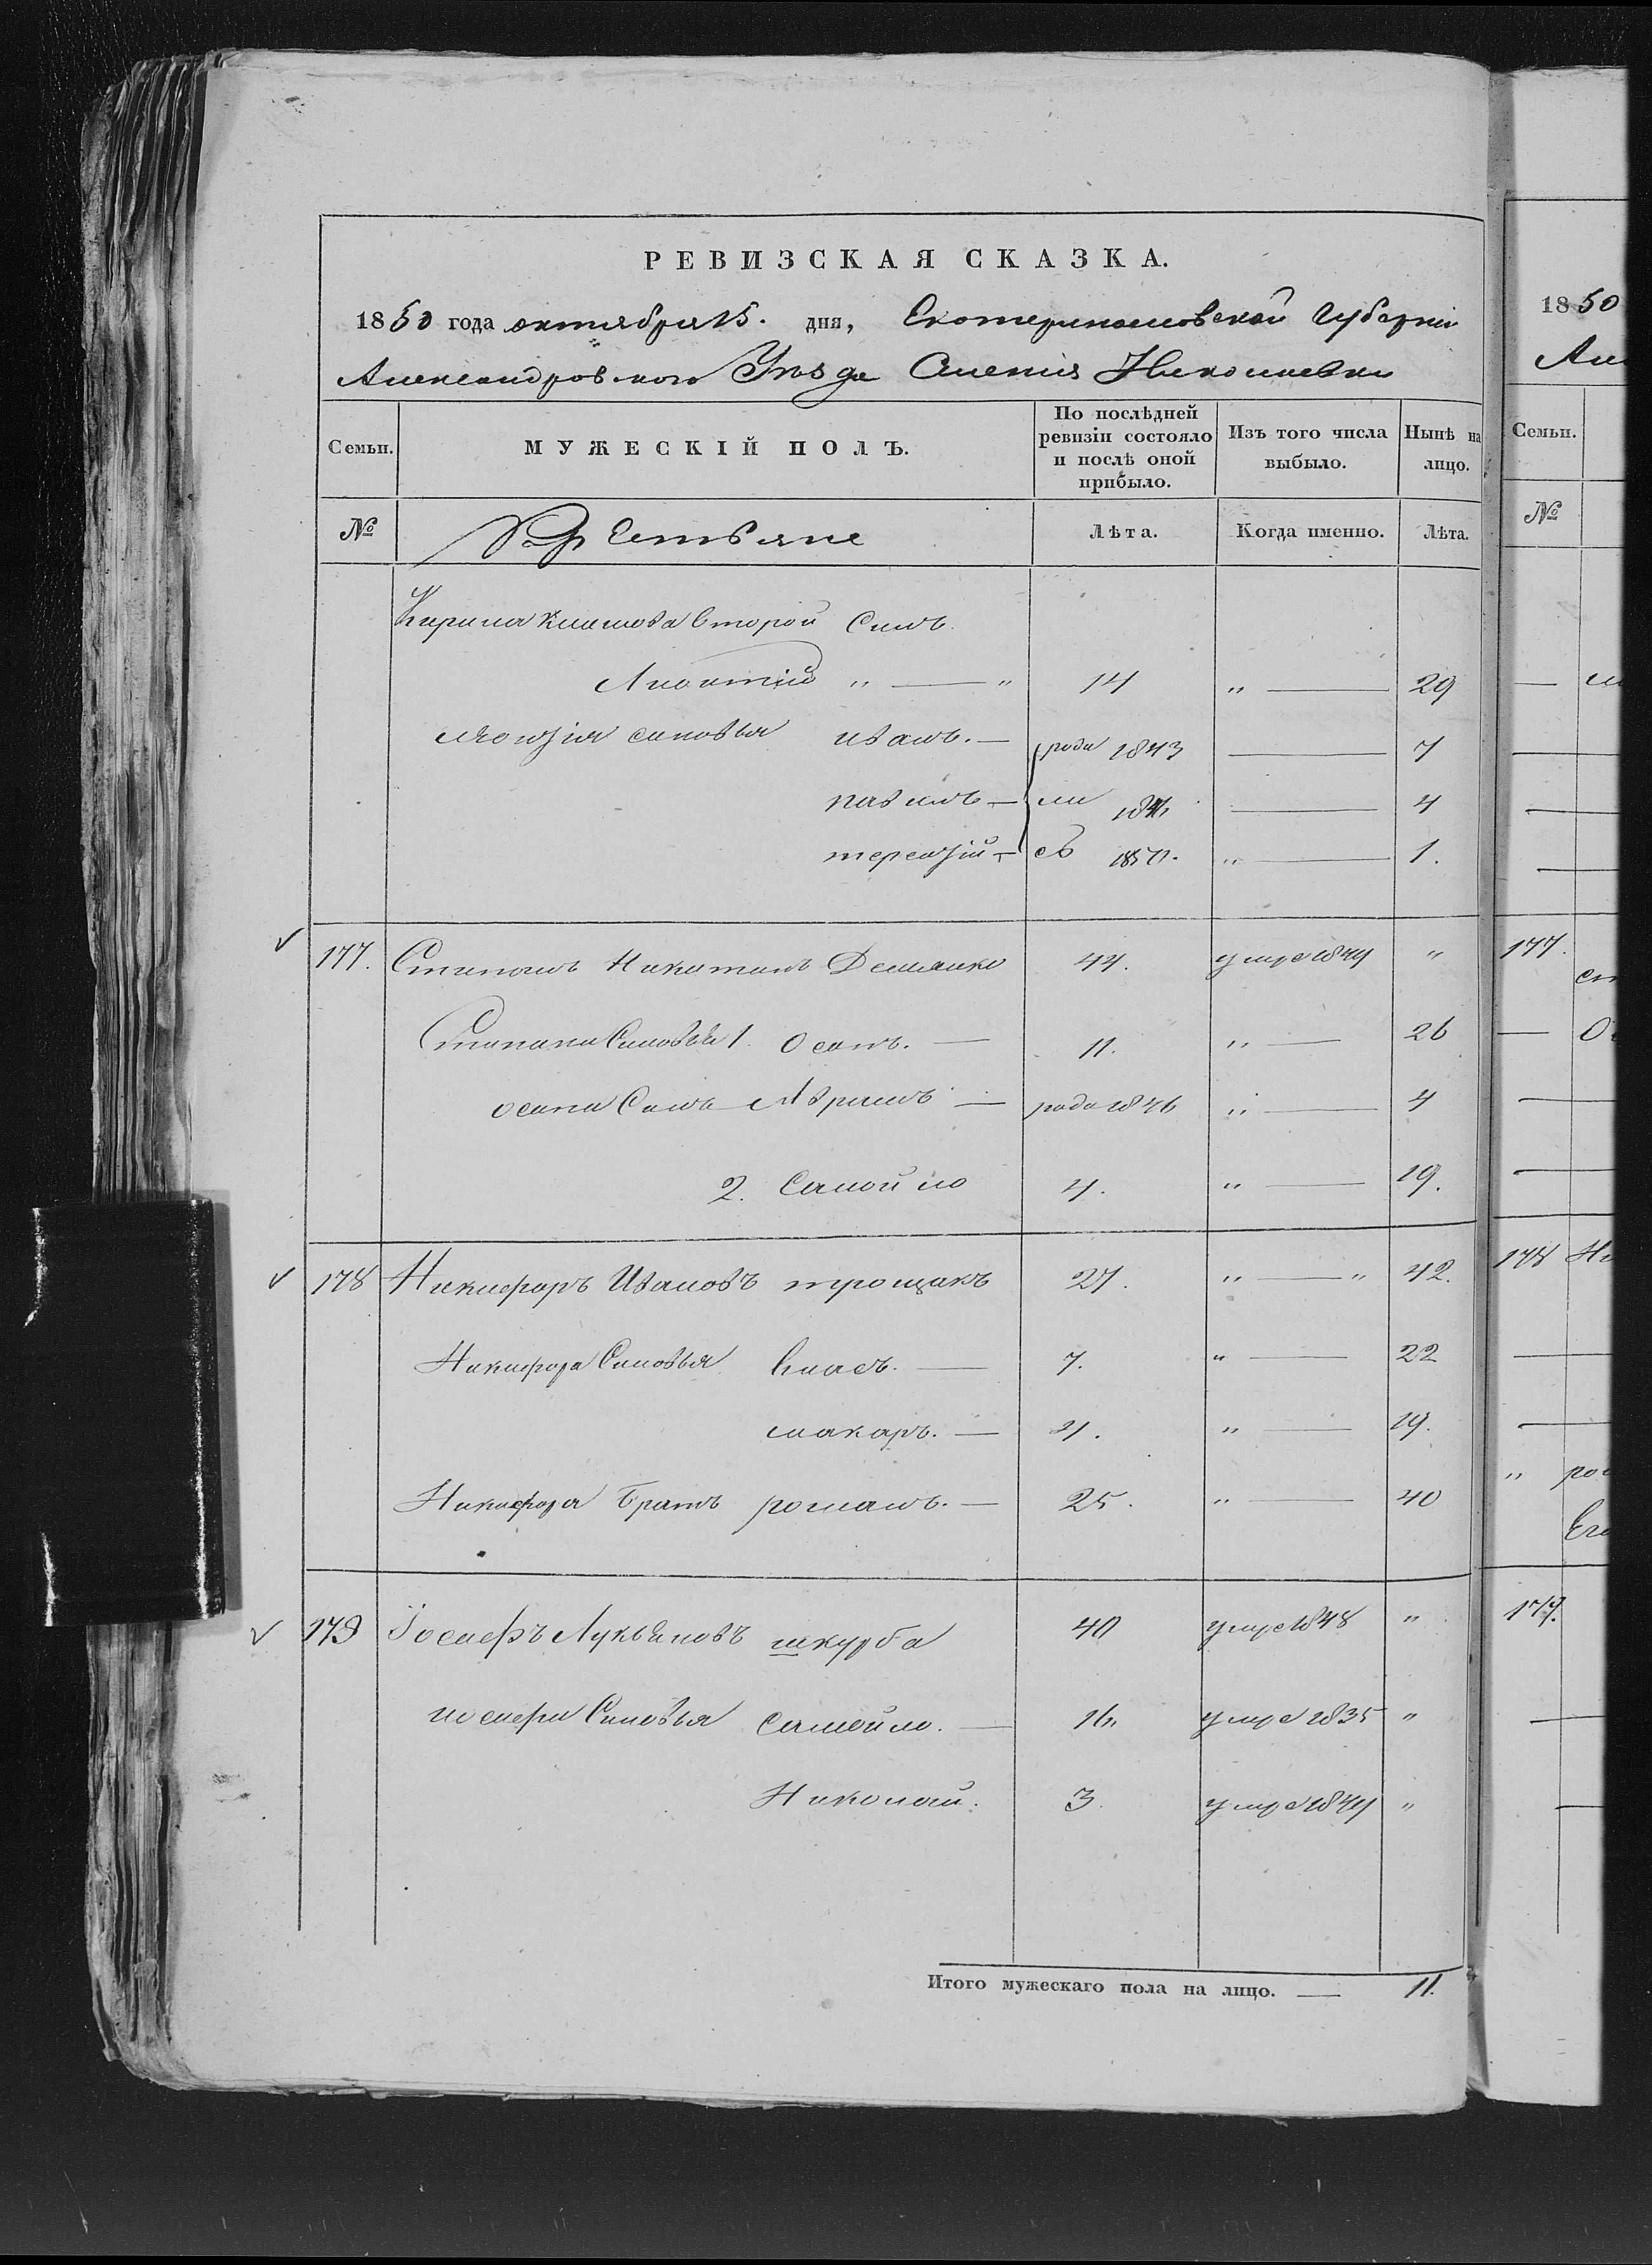 РЕВИЗСКАЯ СКАЗКА.
1850 года октября 15. дня, Екатеринославской Губерніи
Александровского Уезда Николаевки
Семьи. МУЖЕСКІЙ ПОЛЪ. По послѣдней ревизіи состояло и послѣ оной прибыло. Изъ того числа выбыло. Нынѣ на лицо.
№ Крестьяне Лѣта. Когда именно. Лѣта.
Кирила второй Сынъ
Леонтій " — " 14 " — 29
Леонтія синовья иванъ. — роди 1843 — 7
павилъ — ли 1846 — 4
терентій — съ 1850. " — 1.
177. Степанъ Никитинъ Демянко 44. умре 1849 "
Степана Синовья 1. Осипъ. — 11. " — 26
осипа Синъ — роди 1846 " — 4
2. Самойло 4. " — 19.
178 Никифоръ Ивановъ трощакъ 27. " — " 42.
Никифора Синовья Власъ. — 7. " — 22
макаръ. — 4. " — 19.
Никифора Братъ романъ. — 25. " — 40
179 Іосифъ Лукьяновъ шкурба 40 умре 1848 "
иосифа Синовья Самойло. — 16. умре 1835 "
Николай. 3. умре 1849 "
Итого мужескаго пола на лицо. — 11.
1850
Але
Семьи.
№
177.
178 Ни
" ром
Его
179.